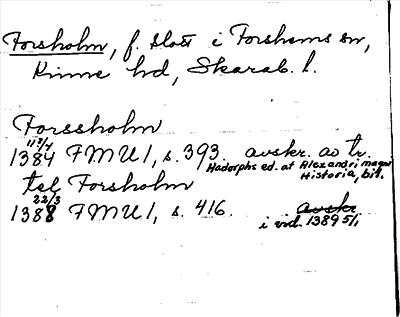 Forsholm, f. slott i Forshems sn,
Kinne hd, Skarab. l.
Forssholm
11 3/4
1384 FMU 1, s. 393. avskr. av tr.
Hadorphs ed. af Alexandri magni
Historia, bil.
tel Forsholm
22/3
1388 FMU 1, s. 416. avskr.
i vid. 1389 5/1